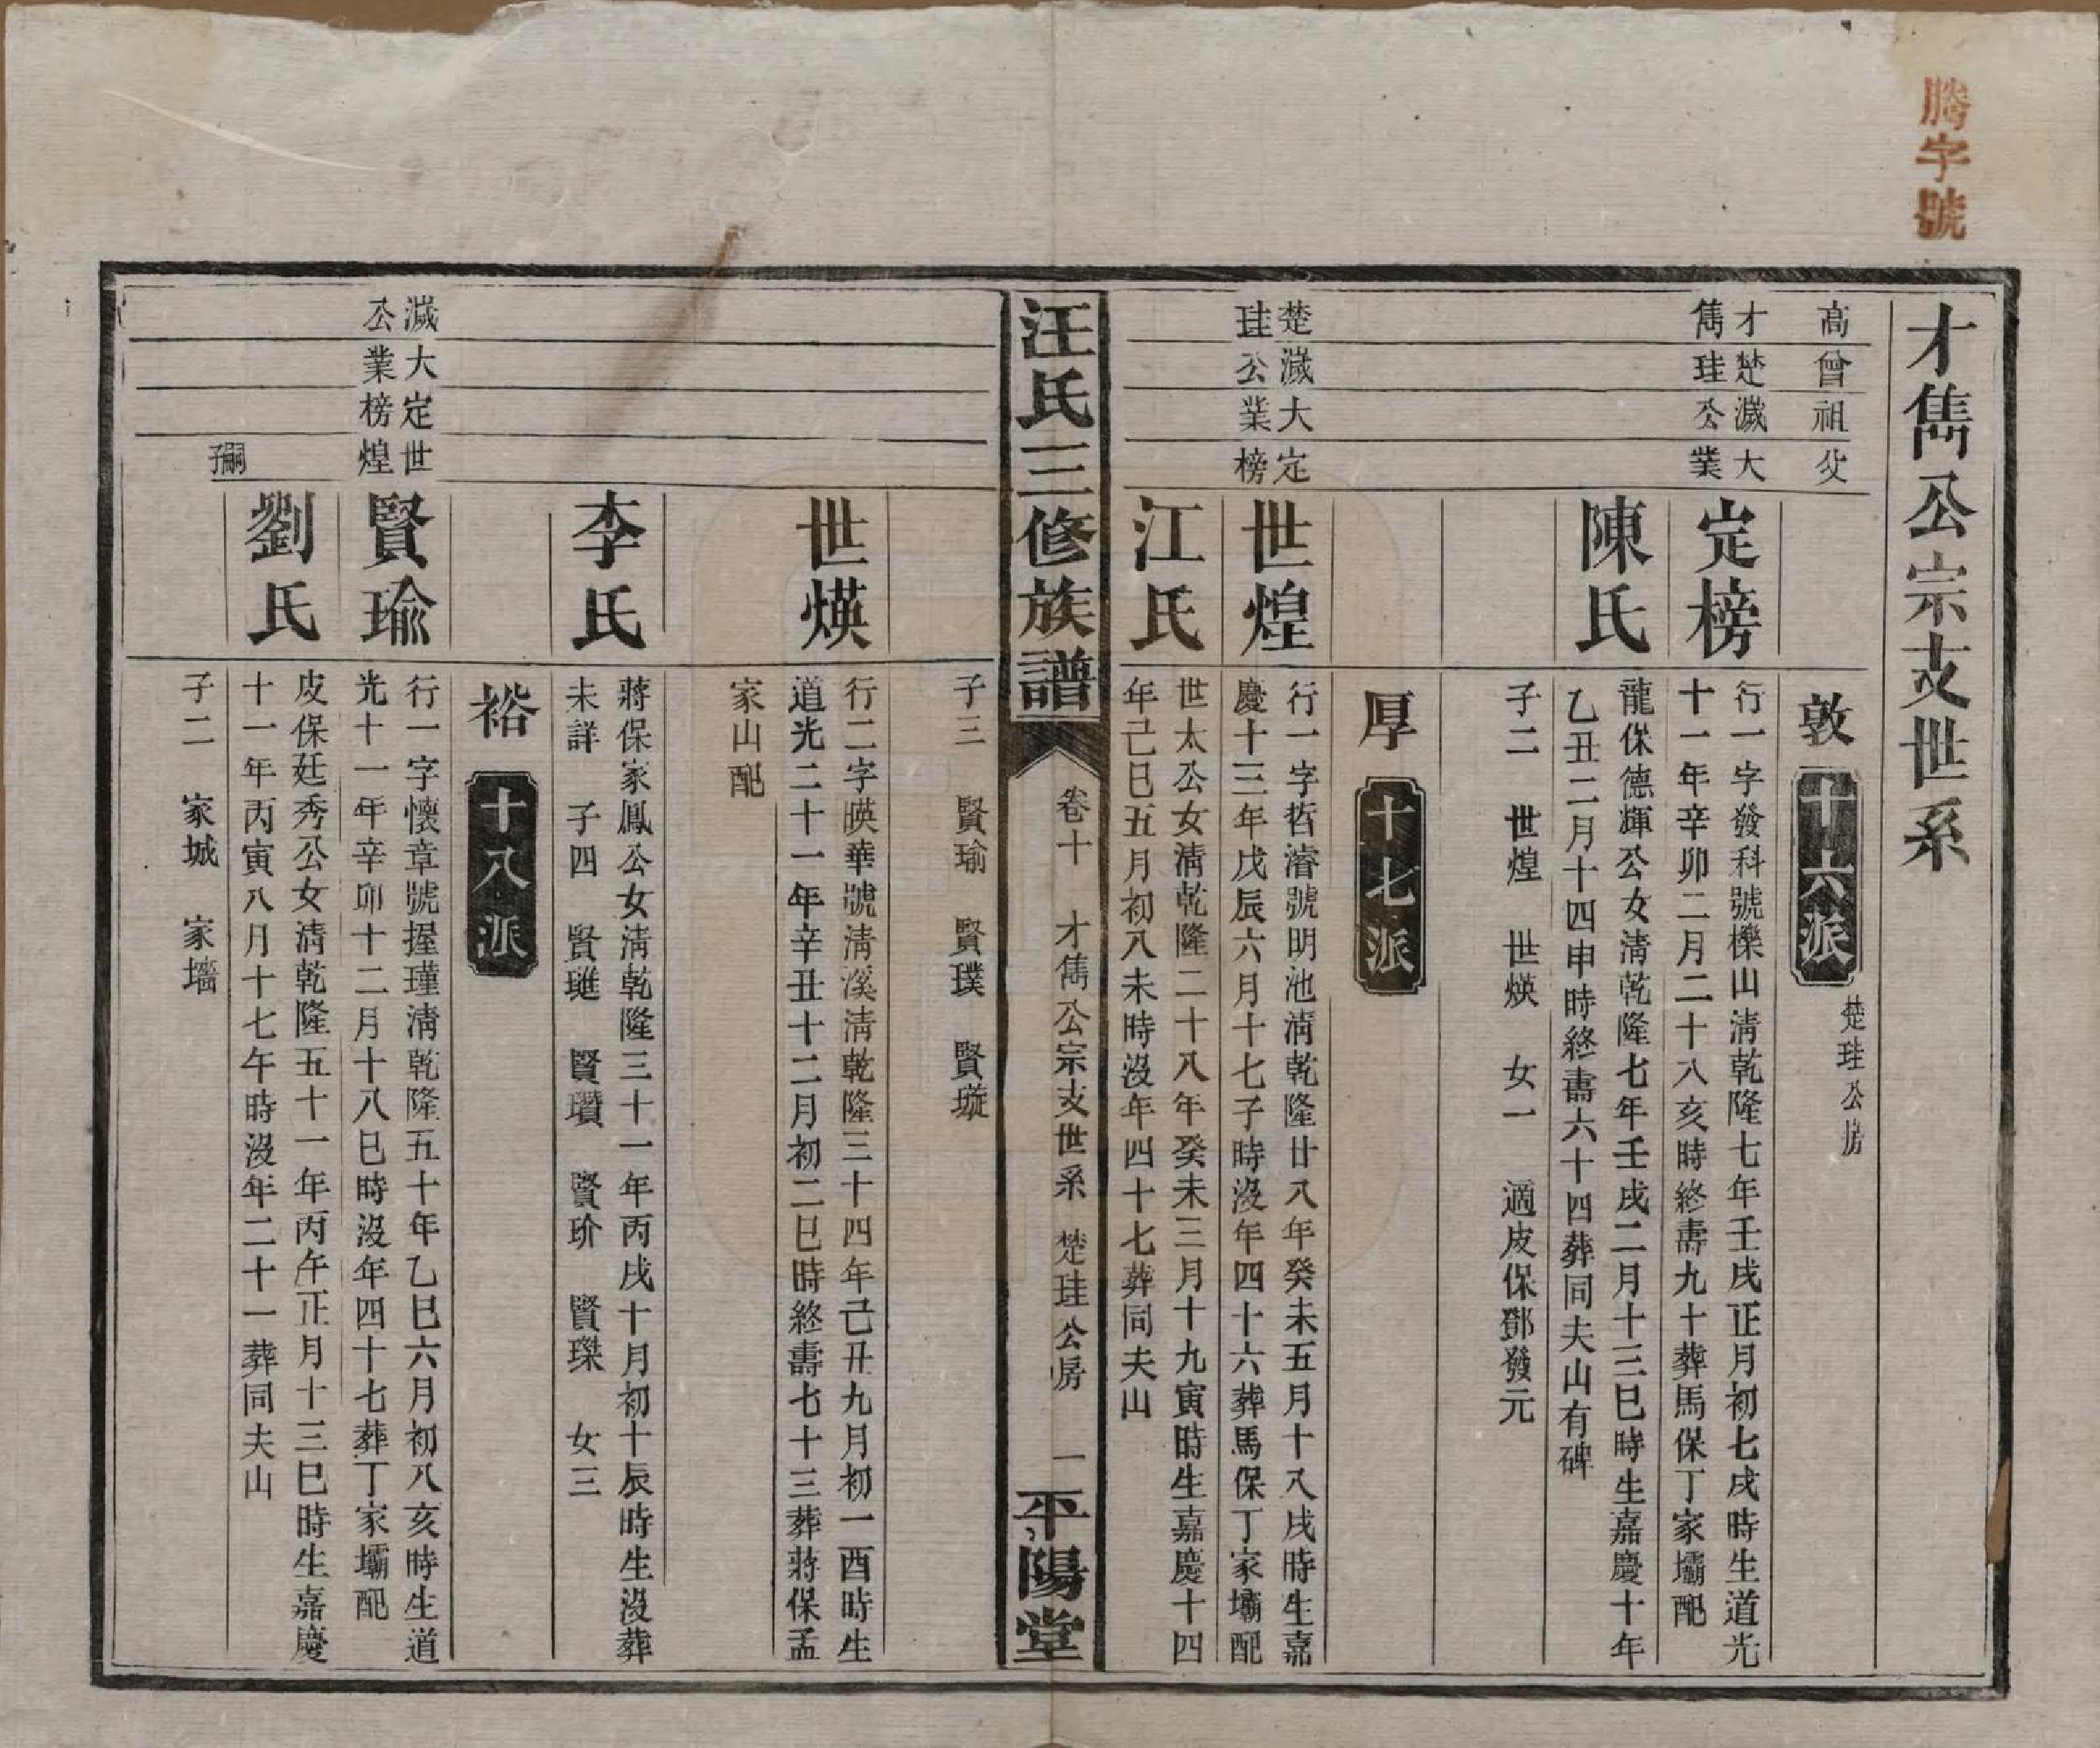 騰字號
才雋公宗支世系
高曾祖父
敦
十六派
楚珪公房
才楚濊大
雋珪公業
定榜
行一字發科號櫟山清乾隆七年壬戌正月初七戌時生道光
十一年辛卯二月二十八亥時終壽九十葬馬保丁家壩配
陳氏
龍保德輝公女清乾隆七年壬戌二月十三巳時生嘉慶十年
乙丑二月十四申時終壽六十四葬同夫山有碑
子二 世煌 世煐 女一 適皮保鄧發元
厚
十七派
楚濊大定
珪公業榜
世煌
行一字哲濬號明池清乾隆廿八年癸未五月十八戌時生嘉
慶十三年戊辰六月十七子時沒年四十六葬馬保丁家壩配
江氏
世太公女清乾隆二十八年癸未三月十九寅時生嘉慶十四
年己巳五月初八未時沒年四十七葬同夫山
汪氏三修族譜
卷十 才雋公宗支世系 楚珪公房 一
平陽堂
子三 賢瑜 賢璞 賢璇
世煐
行二字暎華號清溪清乾隆三十四年己丑九月初一酉時生
道光二十一年辛丑十二月初二巳時終壽七十三葬蔣保孟
家山配
李氏
蔣保家鳳公女清乾隆三十一年丙戌十月初十辰時生沒葬
未詳 子四 賢璡 賢瓚 賢玠 賢璨 女三
裕
十八派
濊大定世
公業榜煌
賢瑜
行一字懷章號握瑾清乾隆五十年乙巳六月初八亥時生道
光十一年辛卯十二月十八巳時沒年四十七葬丁家壩配
嗣子
劉氏
皮保廷秀公女清乾隆五十一年丙午正月十三巳時生嘉慶
十一年丙寅八月十七午時沒年二十一葬同夫山
子二 家城 家墻